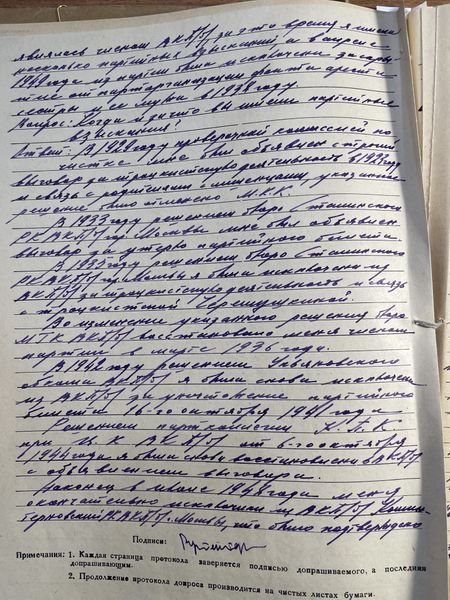 являлась членом ВКП/б/ за это время имела
несколько партийных взысканий, а в апреле
1949 года из партии была исключена за скры-
тие от парторганизации факта ареста
сестры и ее мужа в 1938 году.
Вопрос: Когда и за что вы имели партийные
взыскания?
Ответ: В 1929 году проверочной комиссией по
чистке мне был объявлен строгий
выговор за троцкистскую деятельность в 1927 году
и связь с родителями лишенцами, указанное
решение было отменено М.К.К.
В 1933 году решением бюро Сталинского
РК ВКП/б/ гор. Москвы мне был объявлен
выговор за утерю партийного билета.
В 1935 году решением бюро Сталинского
РК ВКП/б/ гор. Москвы я была исключена из
ВКП/б/ за троцкистскую деятельность и связь
с троцкисткой
Во изменение указанного решения бюро
МГК ВКП/б/ восстановило меня членом
партии в марте 1936 года.
В 1942 году решением Ульяновского
обкома ВКП/б/ я была снова исключена
из ВКП/б/ за уничтожение партийного
билета 16-го октября 1941 года.
Решением партколлегии К.П.К
при Ц.К ВКП/б/ от 6-го октября
1944 года я была снова восстановлена в ВКП/б/
с объявлением выговора.
Наконец в 1948 года меня
окончательно исключили из ВКП/б/ Комин-
терновский РК ВКП/б/ г. Москвы, что было подтверждено
Подписи:
Примечания: 1. Каждая страница протокола заверяется подписью допрашиваемого, а последняя
допрашивающим.
2. Продолжение протокола допроса производится на чистых листах бумаги.